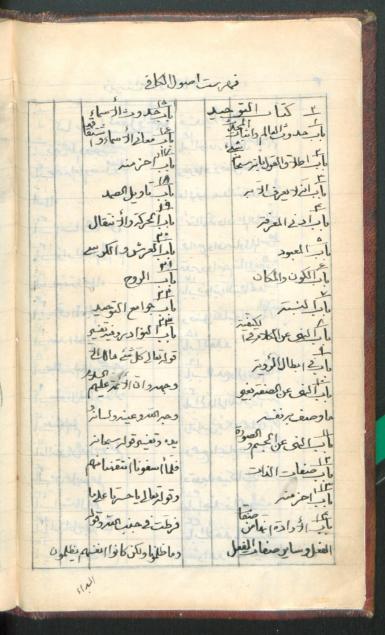 فهرست اصول الکافی
۲ کتاب التوحید
باب حدوث العالم واثبات المحدث
باب اطلاق القول بانه شیء
باب انه لا یعرف الا به
باب ادنی المعرفة
باب المعبود
باب الکون والمکان
باب النسبة
باب النهی عن الکلام فی الکیفیة
باب فی ابطال الرؤیة
باب النهی عن الصفة بغیر
ما وصف به نفسه
باب النهی عن الجسم والصورة
باب صفات الذات
باب اخر منه
باب الارادة انها من صفات
الفعل وسایر صفات الفعل
باب حدوث الاسماء
باب معانی الاسماء واشتقاقها
باب اخر منه
باب تاویل الصمد
باب الحرکة والانتقال
باب العرش والکرسی
باب الروح
باب جوامع التوحید
باب النوادر وفیه تفسیر
قوله تعالی کل شیء هالک الا
وجهه وان الائمة علیهم السلام
وجه الله وعینه ولسانه
ویده وتفسیر قوله سبحانه
فلما آسفونا انتقمنا منهم
وقوله تعالی یا حسرتا علی ما
فرطت فی جنب الله وقوله
وما ظلمونا ولکن کانوا انفسهم یظلمون
البداء